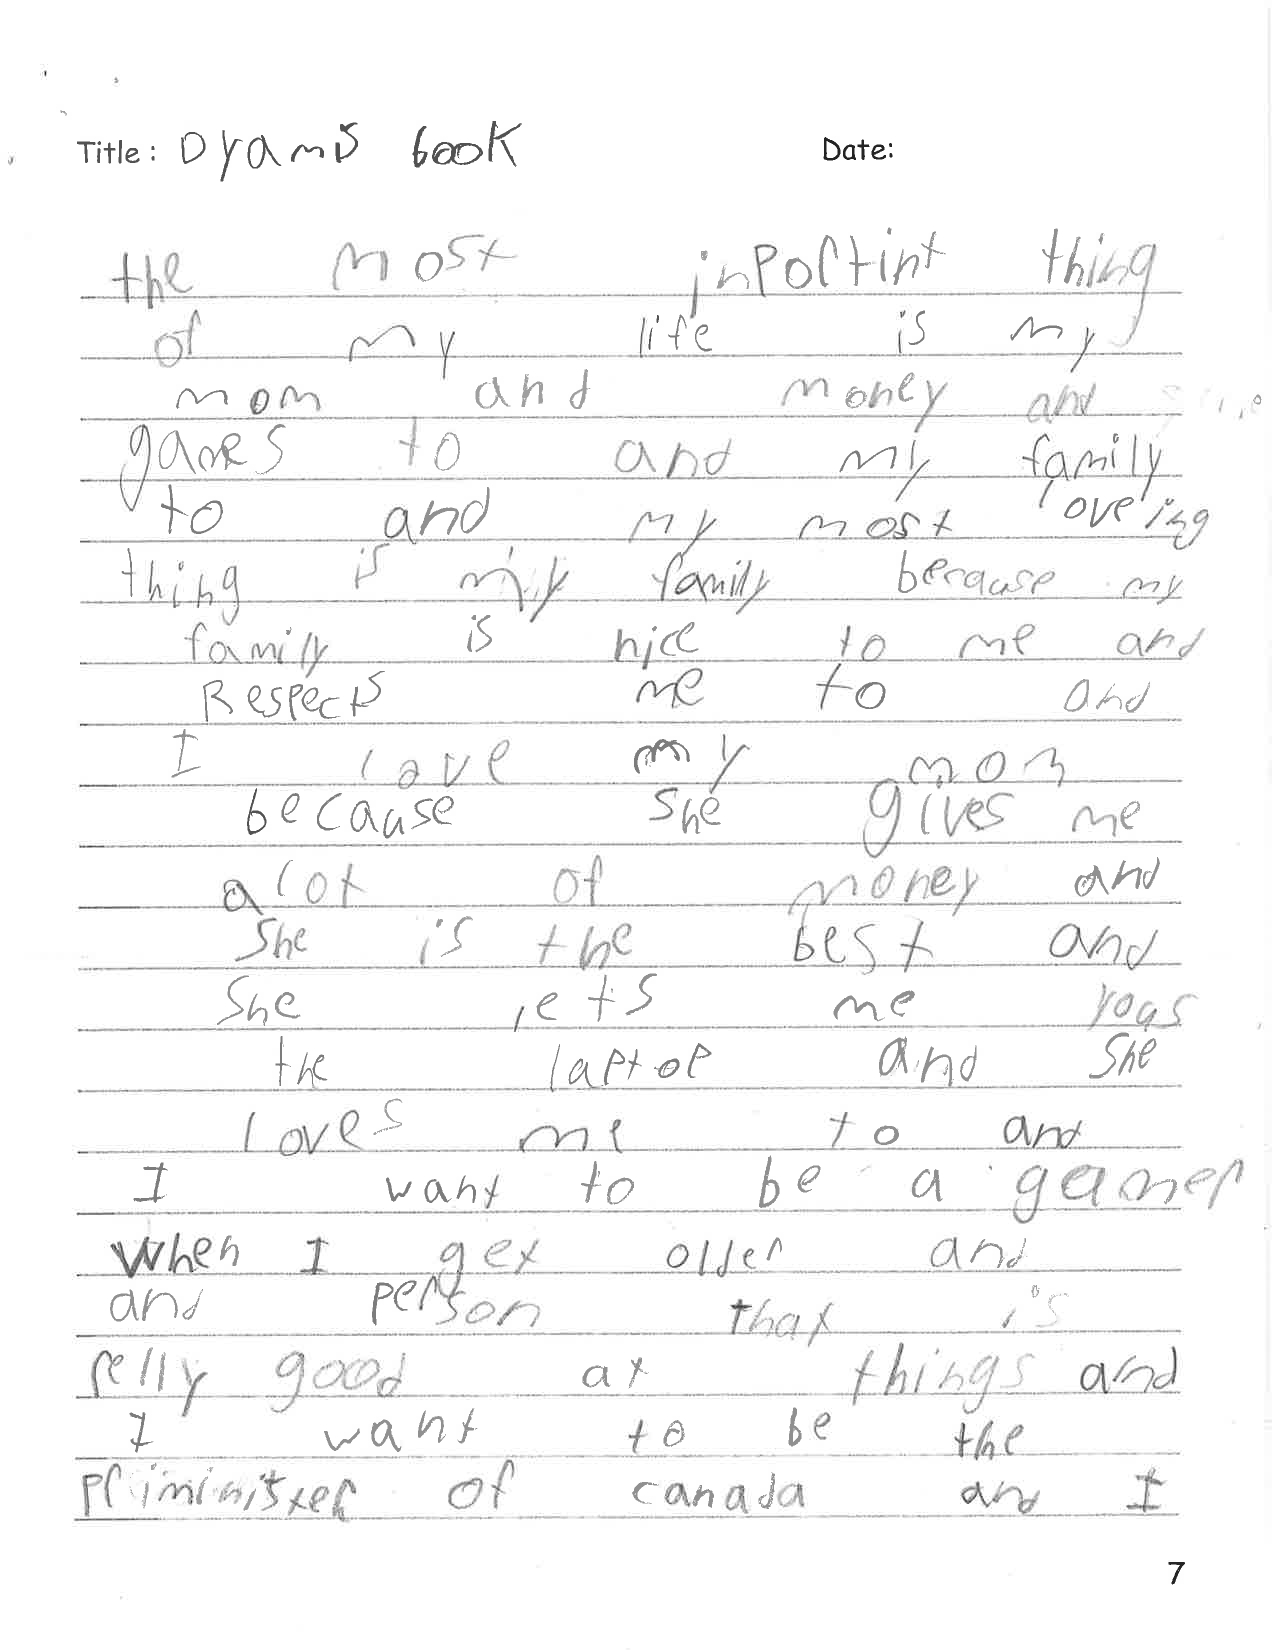 Title: Dyams book Date:
the most inportint thing
of my life is my
mom and money and
games to and my family
to and my most loveing
thing is my family because my
family is nice to me and
Respects me to and
I love my mom
because she gives me
alot of money and
She is the best and
She lets me yoas
the laptop and She
loves me to and
I want to be a gamer
when I get older and
and person that is
relly good at things and
I want to be the
priminister of canada and I
7